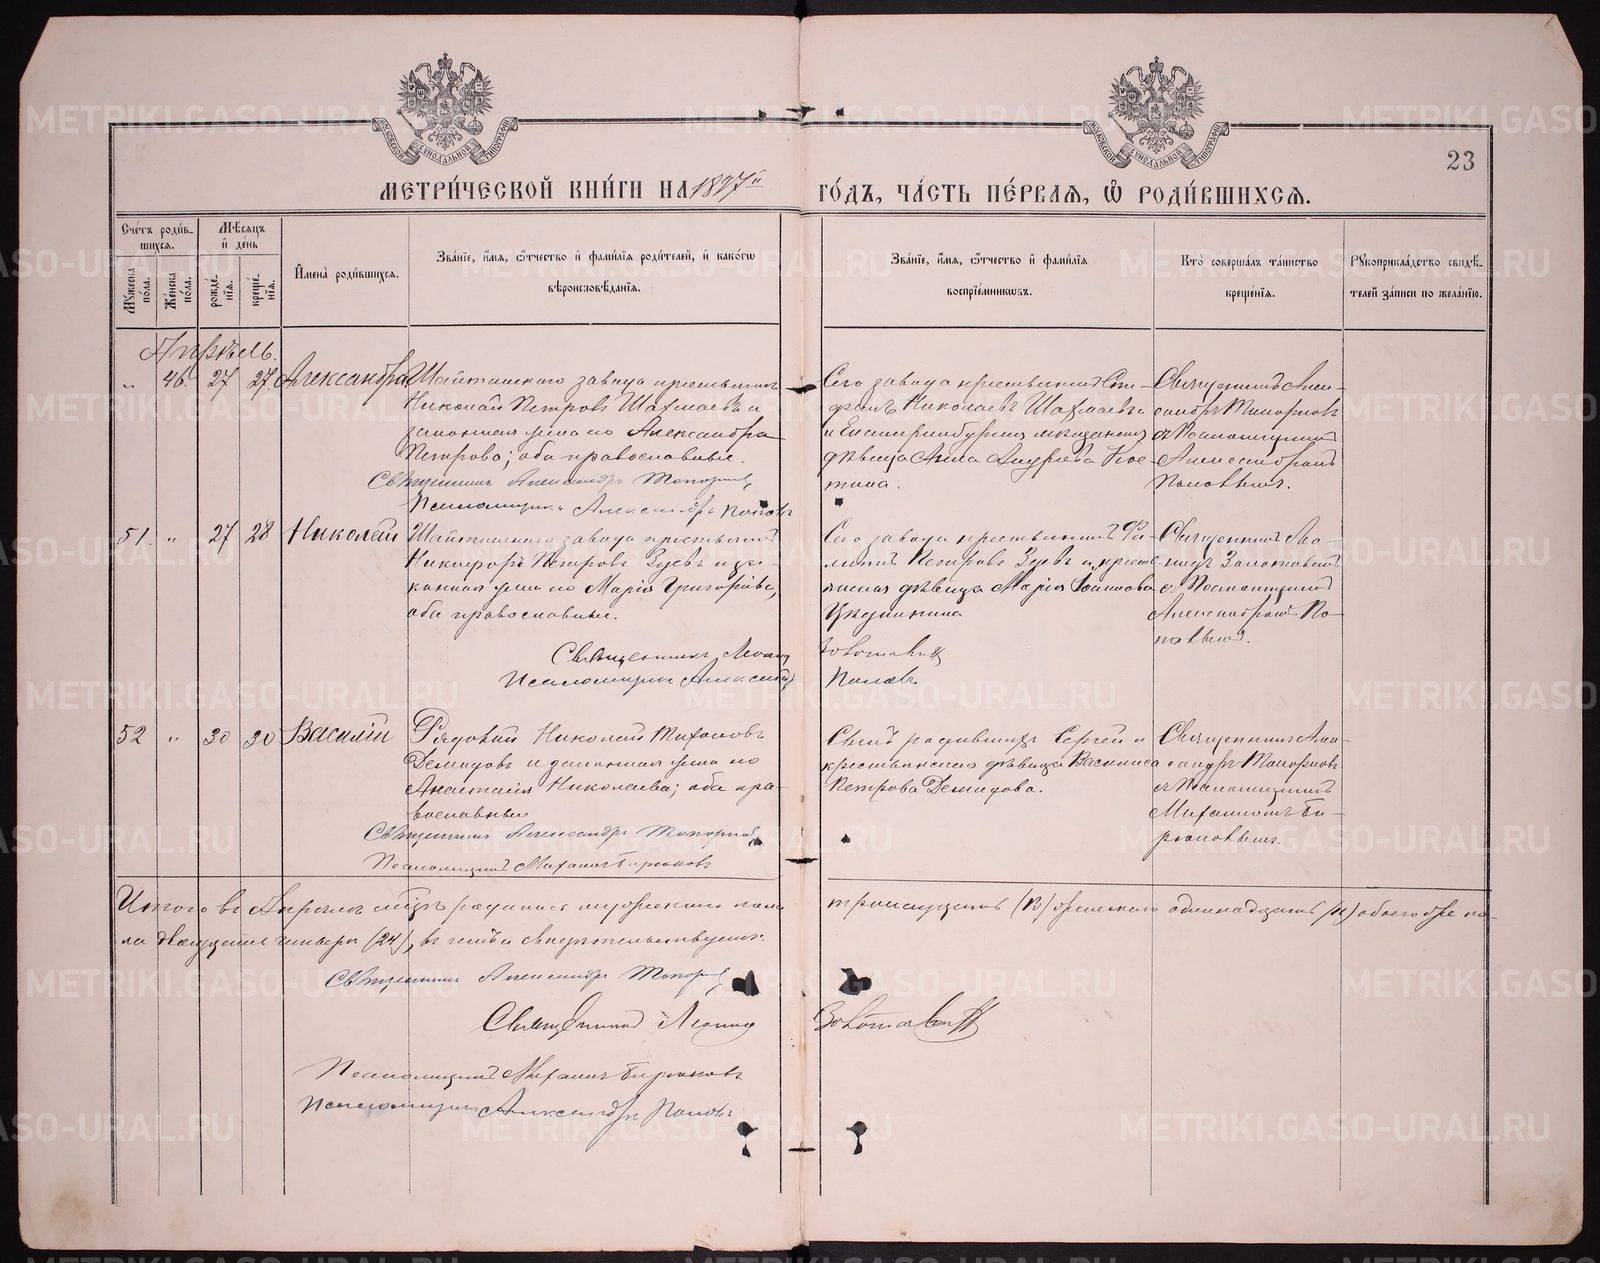 МОСКОВСКОЙ СѴНОДАЛЬНОЙ ТИПОГРАФІИ
МОСКОВСКОЙ СѴНОДАЛЬНОЙ ТИПОГРАФІИ
23
МЕТРИ́ЧЕСКОЙ КНИ́ГИ НА 1897й ГО́ДЪ, ЧА́СТЬ ПЕ́РВАЯ, Ѽ РОДИ́ВШИХСЯ.
Сче́тъ роди́в-
шихся.
Мѣ́сяцъ
и҆ де́нь
Му́жеска по́ла.
Же́нска по́ла.
рожде́нїя.
креще́нїя.
И҆мена̀ роди́вшихся.
Зва́нїе, и҆́мя, ѻ҆́тчество и҆ фами́лїя роди́телей, и҆ како́гѡ
вѣроисповѣ́данїя.
Зва́нїе, и҆́мя, ѻ҆́тчество и҆ фами́лїя
воспрїе́мникѡвъ.
Кто̀ соверша́лъ та́инство
креще́нїя.
Рꙋкоприкла́дство свидѣ́-
телей за́писи по жела́нїю.
Апрѣль.
„ 46. 27 27. Александра
Шайтанскаго завода крестьянинъ
Николай Петровъ Шахмаевъ и
законная жена его Александра
Петрова; оба православные.
Священникъ Александръ Топорковъ
Псаломщикъ Александръ Поповъ
Сего завода крестьянинъ Сте-
фанъ Николаевъ Шахмаевъ
и Екатеринбургская мѣщанская
дѣвица Анна Андреева Кос-
тина.
Священникъ Алек-
сандръ Топорковъ
съ Псаломщикомъ
Александромъ
Поповымъ.
51. „ 27 28 Николай
Шайтанскаго завода крестьянинъ
Никифоръ Петровъ Зуевъ и за-
конная жена его Марія Григорьева,
оба православные.
Священникъ Леонид
Псаломщикъ Александръ
Сего завода крестьянинъ Фи-
липпъ Петровъ Зуевъ и кресть-
янская дѣвица Марія Іоаннова
Золотавинъ
Поповъ
Священникъ Лео-
нидъ Золотавинъ
съ Псаломщикомъ
Александромъ По-
повымъ.
52 „ 30 30 Василій
Рядовой Николай Тихоновъ
Демидовъ и законная жена его
Анастасія Николаева; оба пра-
вославные
Священникъ Александръ Топорковъ
Псаломщикъ Михаилъ Бирюковъ
Сынъ родившихъ Сергей и
крестьянская дѣвица Василиса
Петрова Демидова.
Священникъ Алек-
сандръ Топорковъ
съ Псаломщикомъ
Михаиломъ Би-
рюковымъ.
Итого въ Апрѣлѣ мцѣ родилось мужескаго пола тринадцать (13) женскаго одинадцать (11) обоего же по-
ла двадцать четыре (24), въ чемъ и свидѣтельствуютъ:
Священникъ Александръ Топорковъ
Священникъ Леонид Золотавинъ
Псаломщикъ Михаилъ Бирюковъ
Псаломщикъ Александръ Поповъ
METRIKI.GASO-URAL.RU